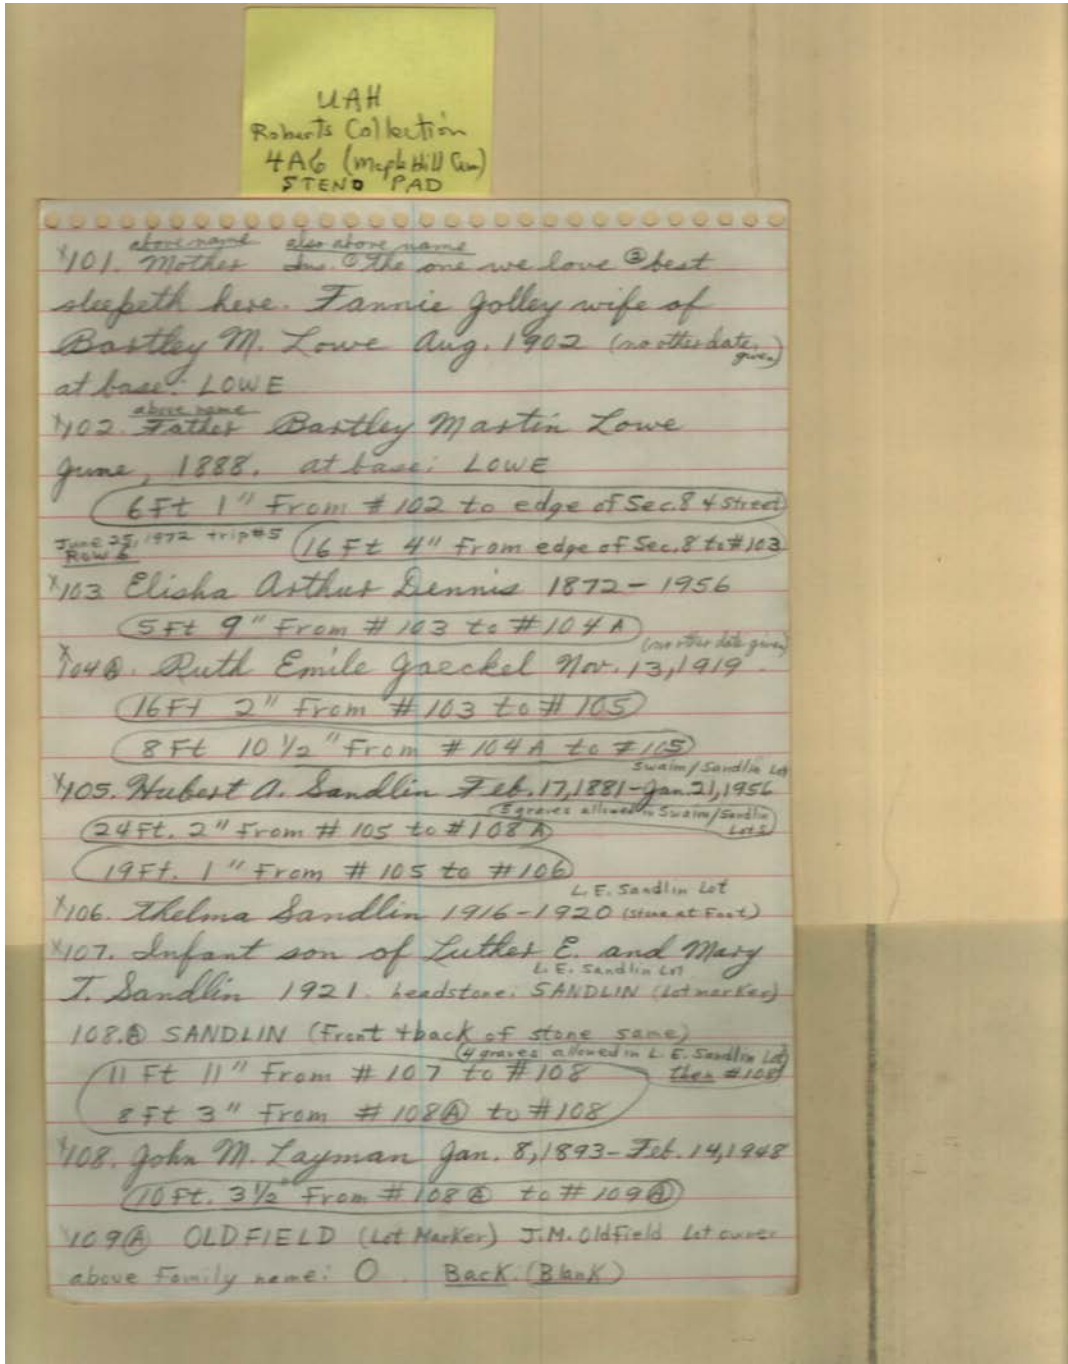 UAH
Roberts Collection
4A6 (Maple Hill Cem)
STENO PAD
above name also above name
x101. Mother Ins. ① the one we love ② best
sleepeth here. Fannie Jolley wife of
Bartley M. Lowe Aug. 1902 (no other date given)
at base: LOWE
above name
x102. Father Bartley Martin Lowe
June, 1888. at base: LOWE
6 Ft 1" From #102 to edge of Sec. 8 + Street
June 25, 1972 trip #5
Row 6
16 Ft 4" From edge of Sec. 8 to #103
x103 Elisha Arthur Dennis 1872-1956
5 Ft 9" From #103 to #104A
(no other date given)
x104Ⓐ. Ruth Emile Jaeckel Nov. 13, 1919
16 Ft 2" From #103 to #105
8 Ft 10 1/2" From #104A to #105
Swaim/Sandlin Lot
x105. Hubert A. Sandlin Feb. 17, 1881-Jan. 21, 1956
5 graves allowed in Swaim/Sandlin Lots
24 Ft. 2" From #105 to #108A
19 Ft. 1" From #105 to #106
L. E. Sandlin Lot
x106. Thelma Sandlin 1916-1920 (stone at Foot)
x107. Infant son of Luther E. and Mary
L. E. Sandlin Lot
T. Sandlin 1921. headstone: SANDLIN (Lot marker)
108.Ⓐ SANDLIN (Front + back of stone same)
(4 graves allowed in L. E. Sandlin Lot
then #108)
11 Ft 11" From #107 to #108
8 Ft 3" From #108Ⓐ to #108
x108. John M. Layman Jan. 8, 1893-Feb. 14, 1948
10 Ft. 3 1/2" From #108Ⓐ to #109Ⓐ
x109Ⓐ OLDFIELD (Lot Marker) J.M. Oldfield Lot owner
above Family name: O Back: (Blank)